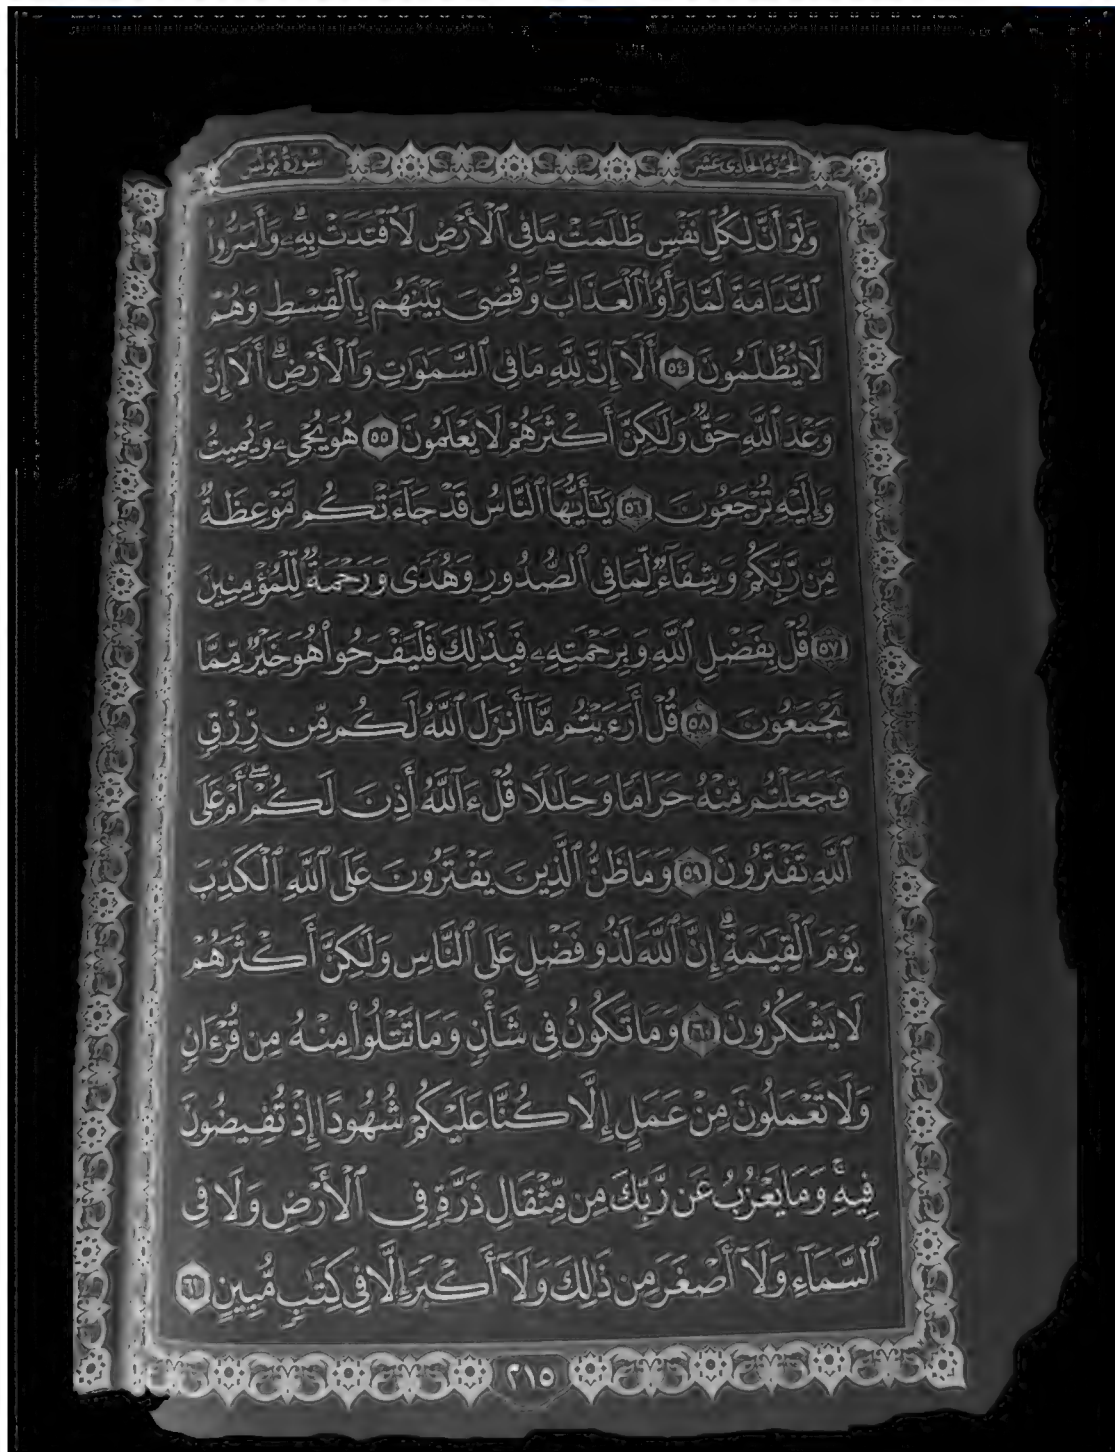 الجزء الحادي عشر
سورة يونس
وَلَوْ أَنَّ لِكُلِّ نَفْسٍ ظَلَمَتْ مَا فِي ٱلْأَرْضِ لَٱفْتَدَتْ بِهِۦۗ وَأَسَرُّوا۟
ٱلنَّدَامَةَ لَمَّا رَأَوُا۟ ٱلْعَذَابَۖ وَقُضِىَ بَيْنَهُم بِٱلْقِسْطِ وَهُمْ
لَا يُظْلَمُونَ ٥٤ أَلَآ إِنَّ لِلَّهِ مَا فِي ٱلسَّمَٰوَٰتِ وَٱلْأَرْضِۗ أَلَآ إِنَّ
وَعْدَ ٱللَّهِ حَقٌّ وَلَٰكِنَّ أَكْثَرَهُمْ لَا يَعْلَمُونَ ٥٥ هُوَ يُحْىِۦ وَيُمِيتُ
وَإِلَيْهِ تُرْجَعُونَ ٥٦ يَٰٓأَيُّهَا ٱلنَّاسُ قَدْ جَآءَتْكُم مَّوْعِظَةٌ
مِّن رَّبِّكُمْ وَشِفَآءٌ لِّمَا فِي ٱلصُّدُورِ وَهُدًى وَرَحْمَةٌ لِّلْمُؤْمِنِينَ
٥٧ قُلْ بِفَضْلِ ٱللَّهِ وَبِرَحْمَتِهِۦ فَبِذَٰلِكَ فَلْيَفْرَحُوا۟ هُوَ خَيْرٌ مِّمَّا
يَجْمَعُونَ ٥٨ قُلْ أَرَءَيْتُم مَّآ أَنزَلَ ٱللَّهُ لَكُم مِّن رِّزْقٍ
فَجَعَلْتُم مِّنْهُ حَرَامًا وَحَلَٰلًا قُلْ ءَآللَّهُ أَذِنَ لَكُمْۖ أَمْ عَلَى
ٱللَّهِ تَفْتَرُونَ ٥٩ وَمَا ظَنُّ ٱلَّذِينَ يَفْتَرُونَ عَلَى ٱللَّهِ ٱلْكَذِبَ
يَوْمَ ٱلْقِيَٰمَةِۗ إِنَّ ٱللَّهَ لَذُو فَضْلٍ عَلَى ٱلنَّاسِ وَلَٰكِنَّ أَكْثَرَهُمْ
لَا يَشْكُرُونَ ٦٠ وَمَا تَكُونُ فِي شَأْنٍ وَمَا تَتْلُوا۟ مِنْهُ مِن قُرْءَانٍ
وَلَا تَعْمَلُونَ مِنْ عَمَلٍ إِلَّا كُنَّا عَلَيْكُمْ شُهُودًا إِذْ تُفِيضُونَ
فِيهِۚ وَمَا يَعْزُبُ عَن رَّبِّكَ مِن مِّثْقَالِ ذَرَّةٍ فِي ٱلْأَرْضِ وَلَا فِي
ٱلسَّمَآءِ وَلَآ أَصْغَرَ مِن ذَٰلِكَ وَلَآ أَكْبَرَ إِلَّا فِي كِتَٰبٍ مُّبِينٍ ٦١
٢١٥